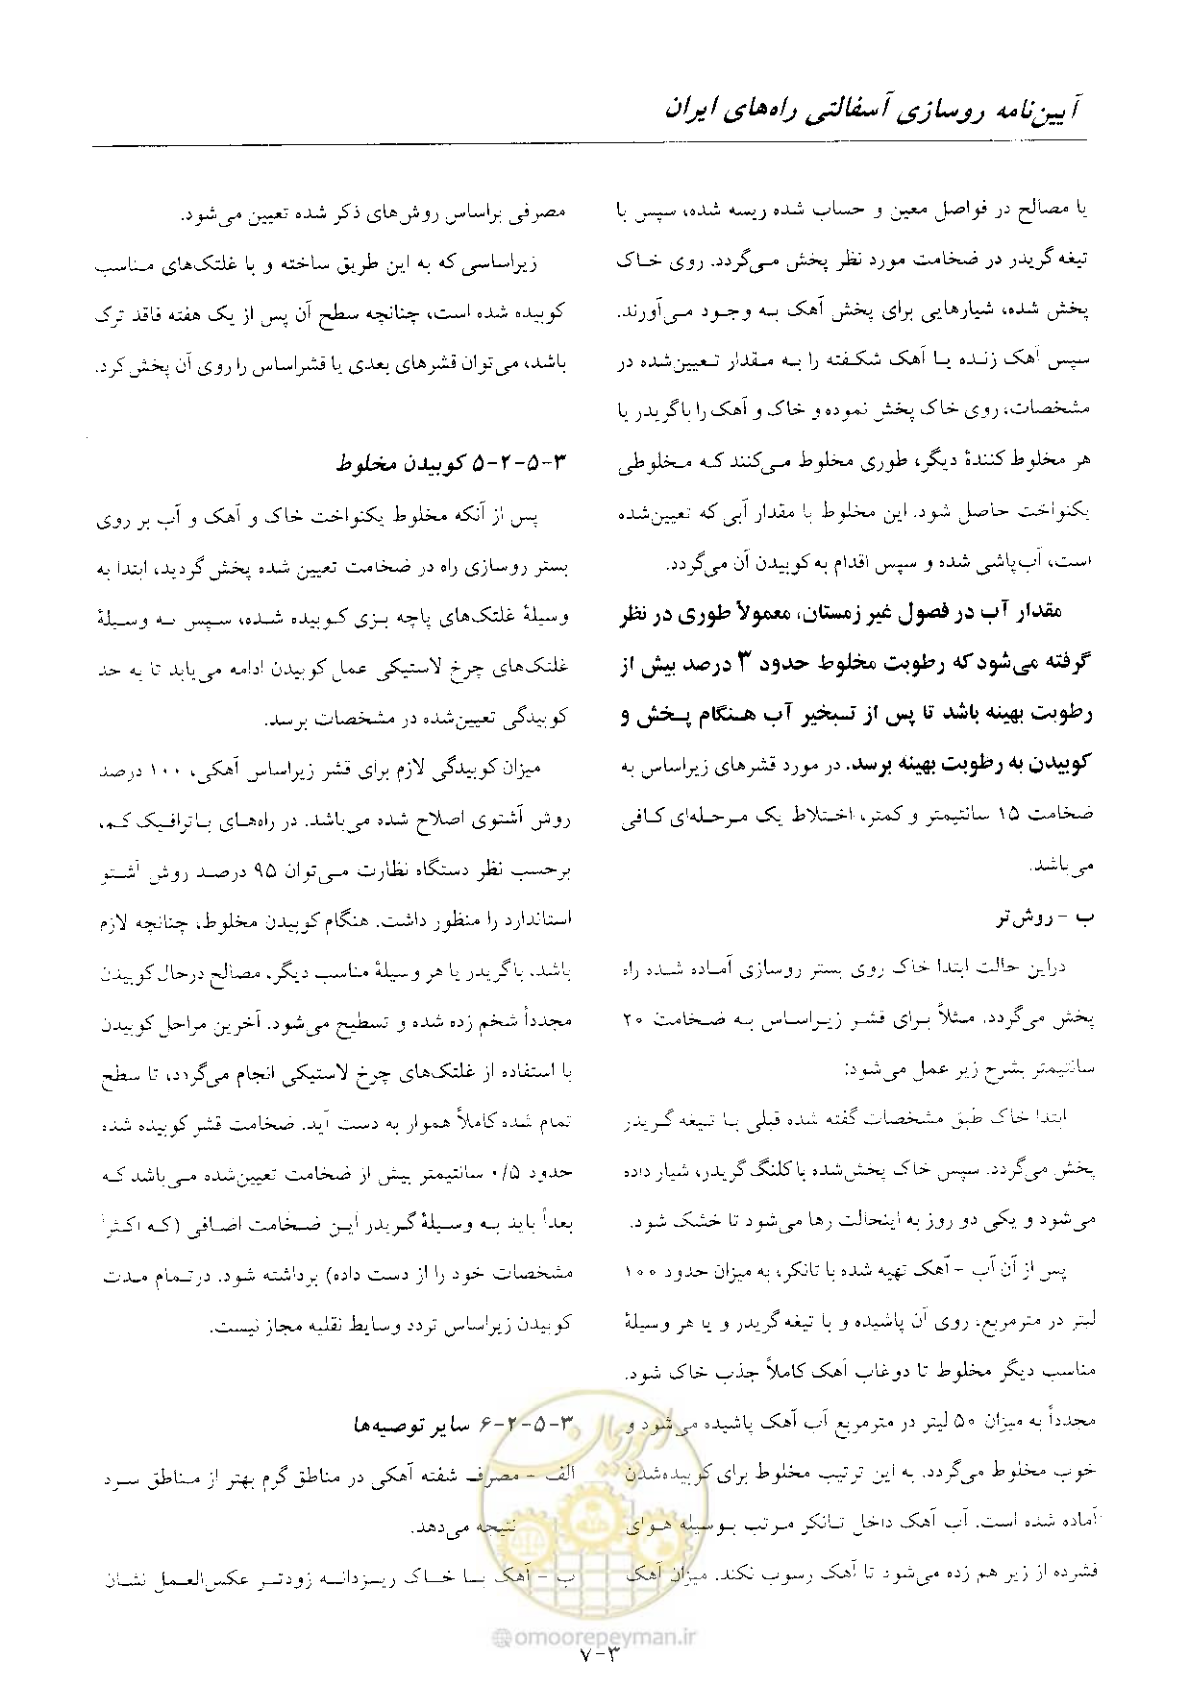 آیین‌نامه روسازی آسفالتی راه‌های ایران
یا مصالح در فواصل معین و حساب شده ریسه شده، سپس با
تیغه گریدر در ضخامت مورد نظر پخش می‌گردد. روی خاک
پخش شده، شیارهایی برای پخش آهک به وجود می‌آورند.
سپس آهک زنده یا آهک شکفته را به مقدار تعیین‌شده در
مشخصات، روی خاک پخش نموده و خاک و آهک را با گریدر یا
هر مخلوط کنندهٔ دیگر، طوری مخلوط می‌کنند که مخلوطی
یکنواخت حاصل شود. این مخلوط با مقدار آبی که تعیین‌شده
است، آب‌پاشی شده و سپس اقدام به کوبیدن آن می‌گردد.
مقدار آب در فصول غیر زمستان، معمولاً طوری در نظر
گرفته می‌شود که رطوبت مخلوط حدود ۳ درصد بیش از
رطوبت بهینه باشد تا پس از تبخیر آب هنگام پخش و
کوبیدن به رطوبت بهینه برسد. در مورد قشرهای زیراساس به
ضخامت ۱۵ سانتیمتر و کمتر، اختلاط یک مرحله‌ای کافی
می‌باشد.
ب - روش‌تر
دراین حالت ابتدا خاک روی بستر روسازی آماده شده راه
پخش می‌گردد. مثلاً برای قشر زیراساس به ضخامت ۲۰
سانتیمتر بشرح زیر عمل می‌شود:
ابتدا خاک طبق مشخصات گفته شده قبلی با تیغه گریدر
پخش می‌گردد. سپس خاک پخش‌شده با کلنگ گریدر، شیار داده
می‌شود و یکی دو روز به اینحالت رها می‌شود تا خشک شود.
پس از آن آب - آهک تهیه شده با تانکر، به میزان حدود ۱۰۰
لیتر در مترمربع، روی آن پاشیده و با تیغه گریدر و یا هر وسیلهٔ
مناسب دیگر مخلوط تا دوغاب آهک کاملاً جذب خاک شود.
مجدداً به میزان ۵۰ لیتر در مترمربع آب آهک پاشیده می‌شود و
خوب مخلوط می‌گردد. به این ترتیب مخلوط برای کوبیده‌شدن
آماده شده است. آب آهک داخل تانکر مرتب بوسیله هوای
فشرده از زیر هم زده می‌شود تا آهک رسوب نکند. میزان آهک
مصرفی براساس روش‌های ذکر شده تعیین می‌شود.
زیراساسی که به این طریق ساخته و با غلتک‌های مناسب
کوبیده شده است، چنانچه سطح آن پس از یک هفته فاقد ترک
باشد، می‌توان قشرهای بعدی یا قشراساس را روی آن پخش کرد.
۳-۵-۲-۵ کوبیدن مخلوط
پس از آنکه مخلوط یکنواخت خاک و آهک و آب بر روی
بستر روسازی راه در ضخامت تعیین شده پخش گردید، ابتدا به
وسیلهٔ غلتک‌های پاچه بزی کوبیده شده، سپس به وسیلهٔ
غلتک‌های چرخ لاستیکی عمل کوبیدن ادامه می‌یابد تا به حد
کوبیدگی تعیین‌شده در مشخصات برسد.
میزان کوبیدگی لازم برای قشر زیراساس آهکی، ۱۰۰ درصد
روش آشتوی اصلاح شده می‌باشد. در راه‌های با ترافیک کم،
برحسب نظر دستگاه نظارت می‌توان ۹۵ درصد روش آشتو
استاندارد را منظور داشت. هنگام کوبیدن مخلوط، چنانچه لازم
باشد، با گریدر یا هر وسیلهٔ مناسب دیگر، مصالح درحال کوبیدن
مجدداً شخم زده شده و تسطیح می‌شود. آخرین مراحل کوبیدن
با استفاده از غلتک‌های چرخ لاستیکی انجام می‌گردد، تا سطح
تمام شده کاملاً هموار به دست آید. ضخامت قشر کوبیده شده
حدود ۰/۵ سانتیمتر بیش از ضخامت تعیین‌شده می‌باشد که
بعداً باید به وسیلهٔ گریدر این ضخامت اضافی (که اکثراً
مشخصات خود را از دست داده) برداشته شود. درتمام مدت
کوبیدن زیراساس تردد وسایط نقلیه مجاز نیست.
۳-۵-۲-۶ سایر توصیه‌ها
الف - مصرف شفته آهکی در مناطق گرم بهتر از مناطق سرد
نتیجه می‌دهد.
ب - آهک با خاک ریزدانه زودتر عکس‌العمل نشان
امور پیمان
@omoorepeyman.ir
۷-۳